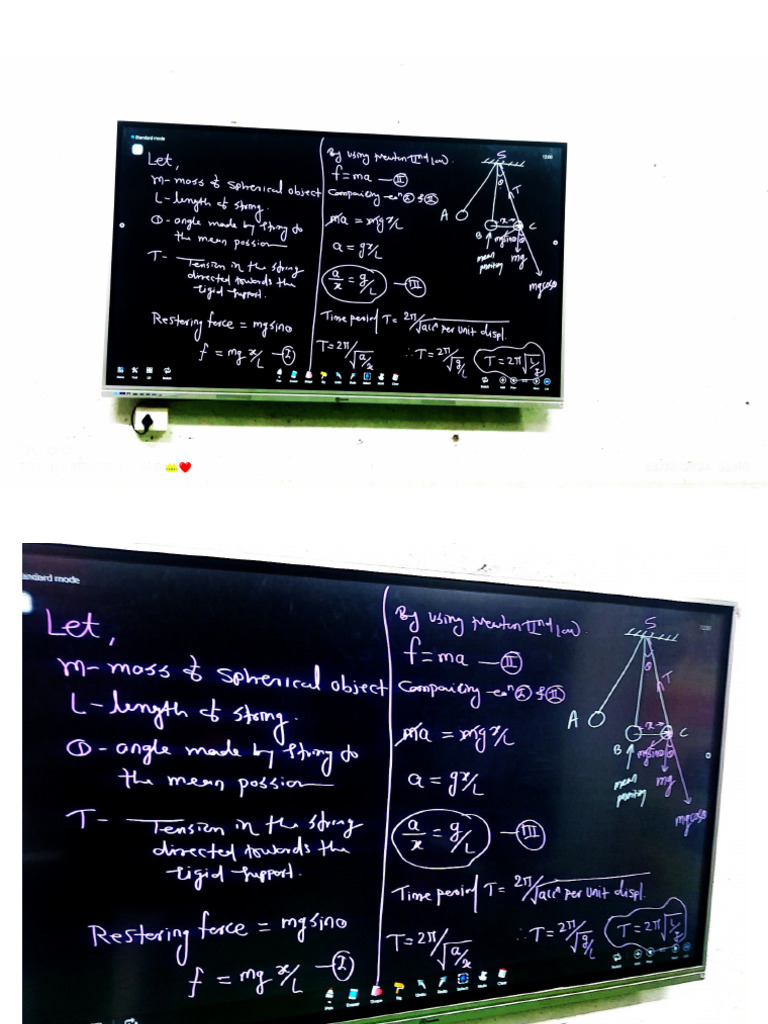 Standard mode
12:00
Let,
m- moss of Spherical object
L - length of string.
θ - angle made by string do
the mean possion
T- Tension in the string
directed towards the
rigid support.
Restering force = mg sinθ
f = mg x/L - ①
By using Newton IInd law.
f = ma - ②
Comparing eqn ① & ②
ma = mg x/L
a = g x/L
a/x = g/L - III
Time period T = 2π/√accn per unit displ.
T = 2π/√a/x
∴ T = 2π/√g/L
T = 2π√L/g
S
θ
T
A
x
B
C
mg sinθ
θ
mg
mg cosθ
mean
position
andard mode
Let,
m- moss of Spherical object
L - length of string.
θ - angle made by string do
the mean possion
T- Tension in the string
directed towards the
rigid support.
Restering force = mg sinθ
f = mg x/L - ①
By using Newton IInd law.
f = ma - ②
Comparing eqn ① & ②
ma = mg x/L
a = g x/L
a/x = g/L - III
Time period T = 2π/√accn per unit displ.
T = 2π/√a/x
∴ T = 2π/√g/L
T = 2π√L/g
S
θ
T
A
x
B
C
mg sinθ
θ
mg
mg cosθ
mean
position